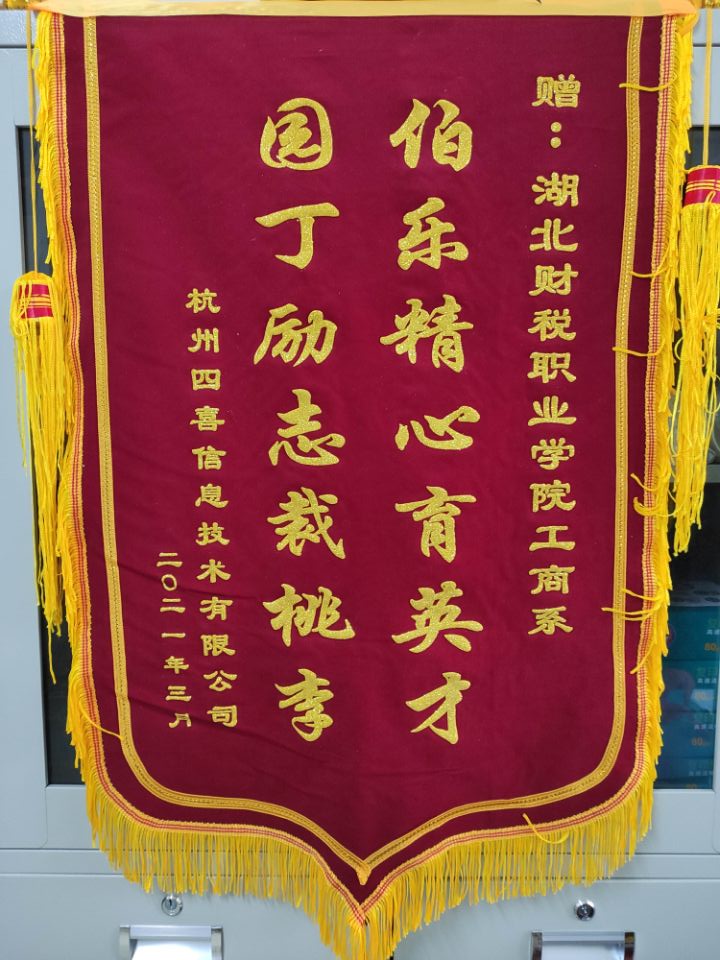 赠：湖北财税职业学院工商系
伯乐精心育英才
园丁励志裁桃李
杭州四喜信息技术有限公司
二〇二一年三月